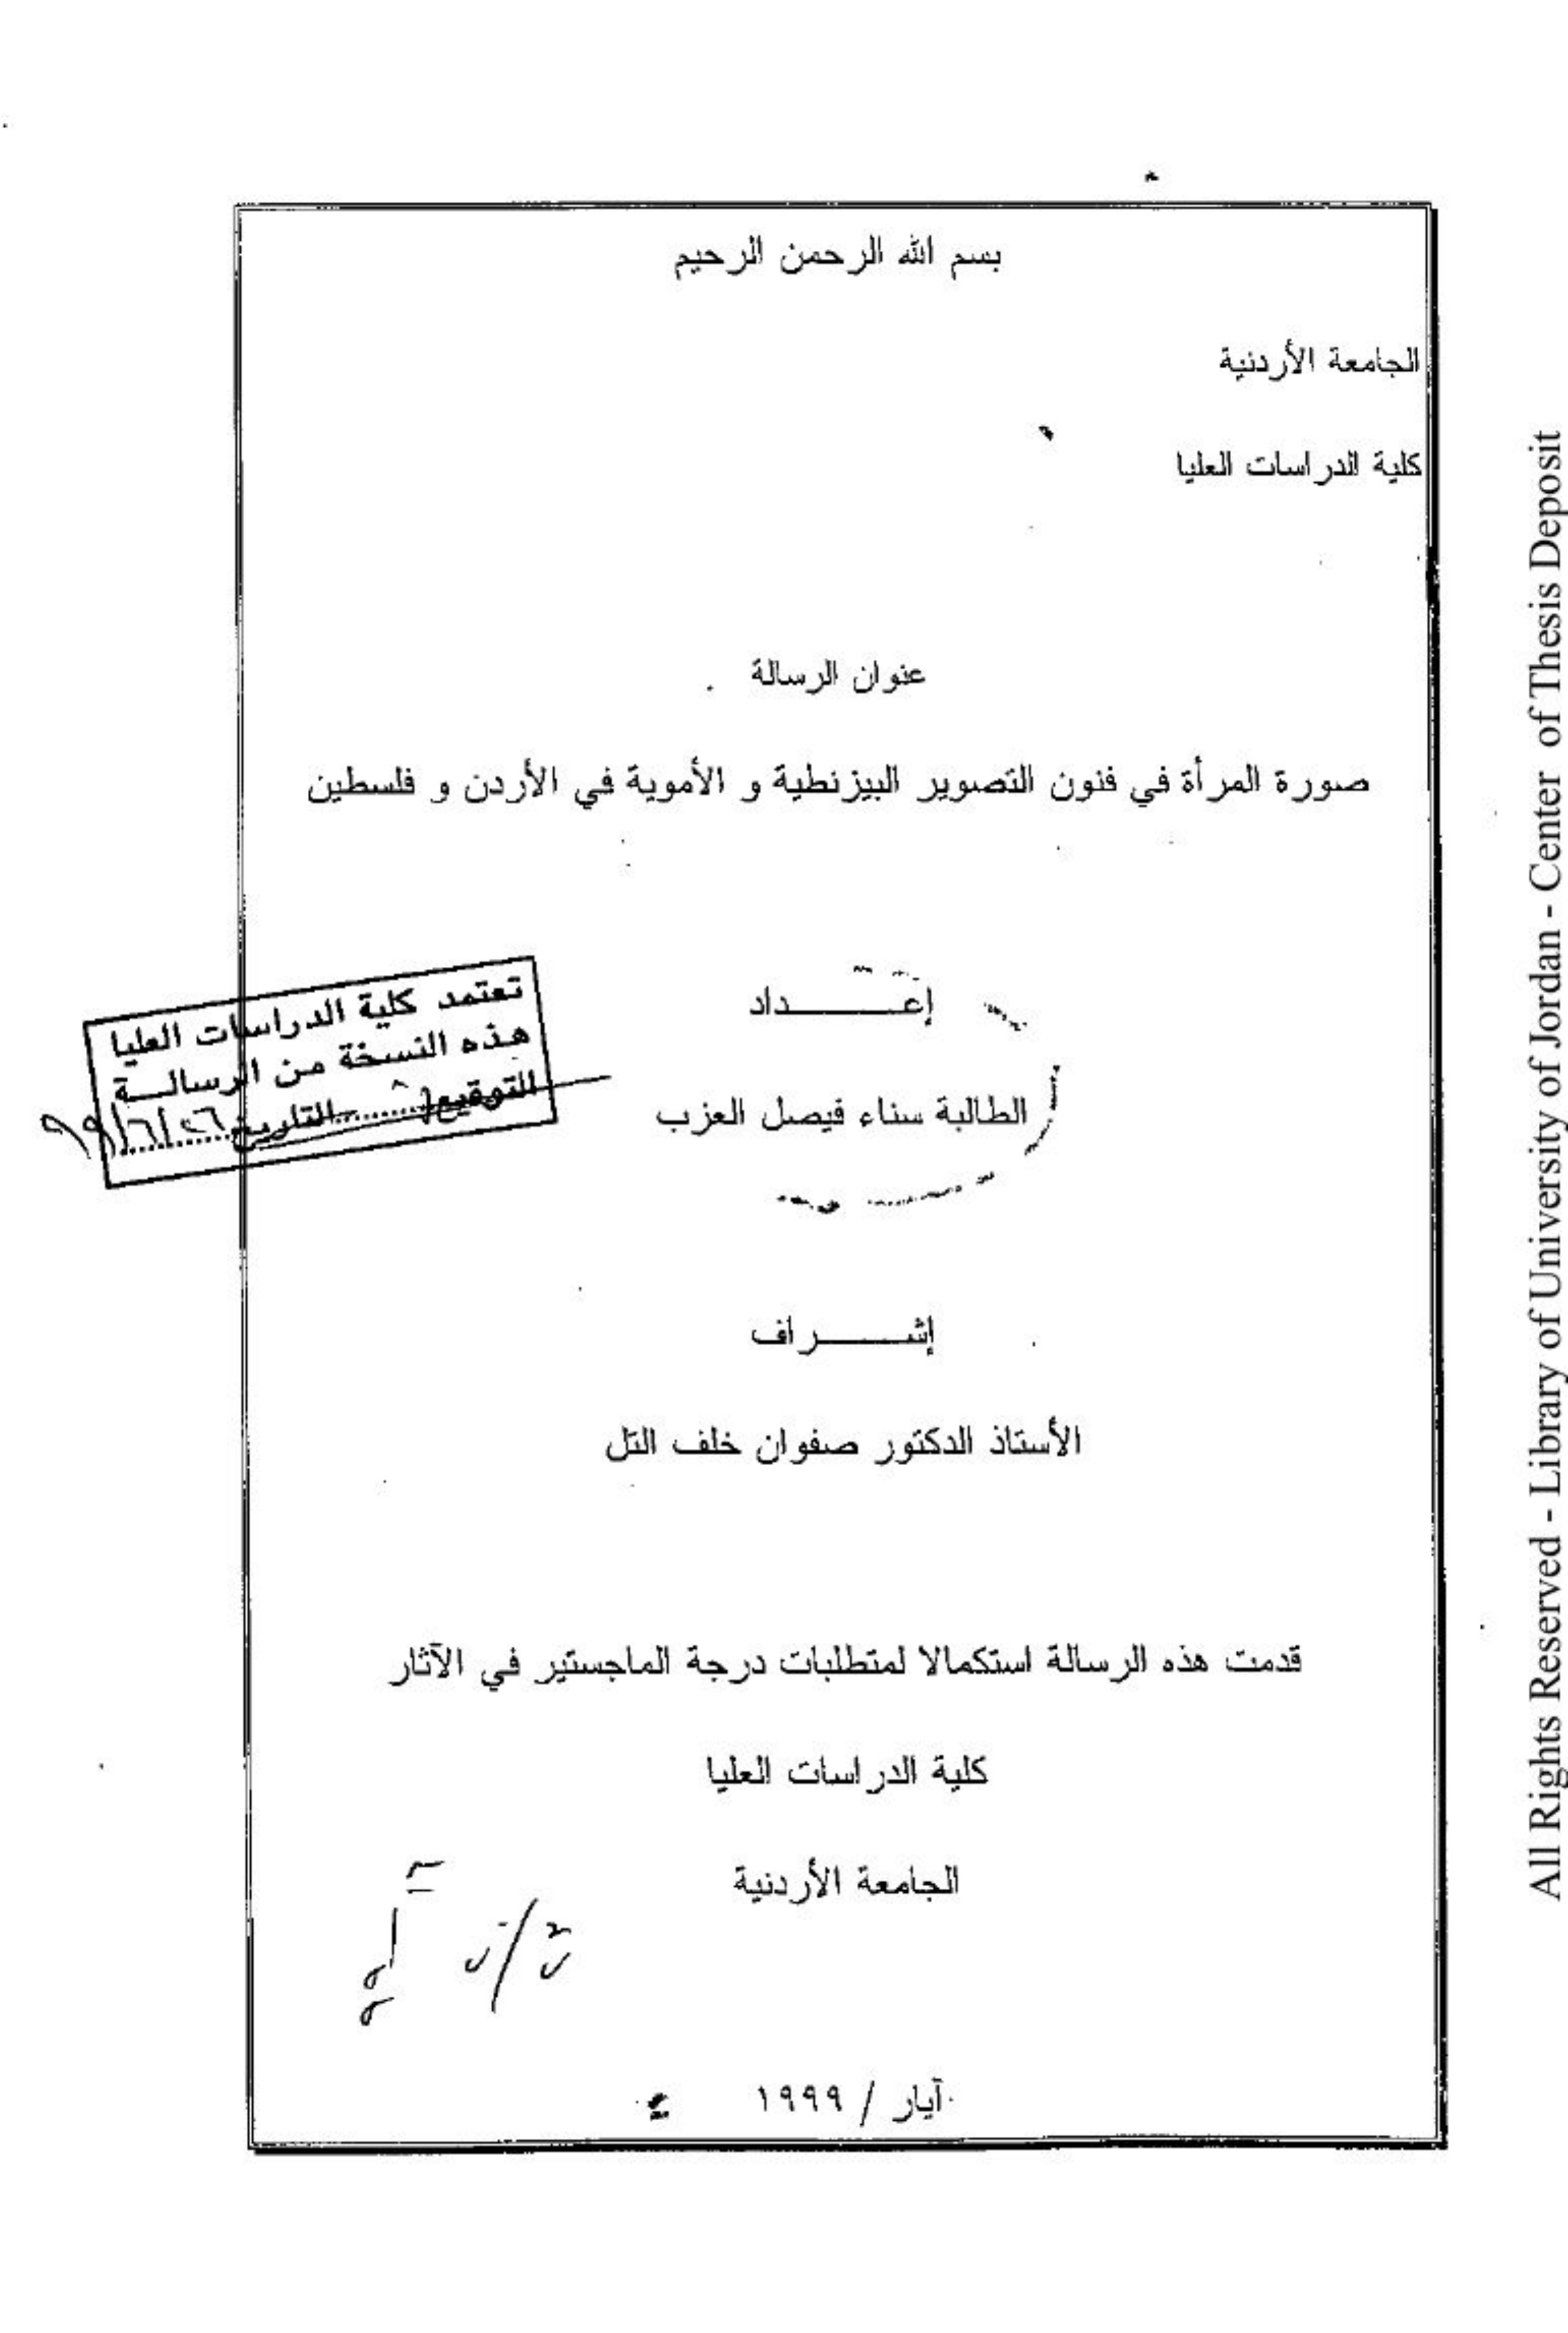 بسم الله الرحمن الرحيم
الجامعة الأردنية
كلية الدراسات العليا
عنوان الرسالة
صورة المرأة في فنون التصوير البيزنطية و الأموية في الأردن و فلسطين
إعـــــــداد
الطالبة سناء فيصل العزب
تعتمد كلية الدراسات العليا
هذه النسخة من الرسالـــة
التوقيع............التاريخ............
إشـــــــراف
الأستاذ الدكتور صفوان خلف التل
قدمت هذه الرسالة استكمالا لمتطلبات درجة الماجستير في الآثار
كلية الدراسات العليا
الجامعة الأردنية
آيار / ١٩٩٩
All Rights Reserved - Library of University of Jordan - Center of Thesis Deposit